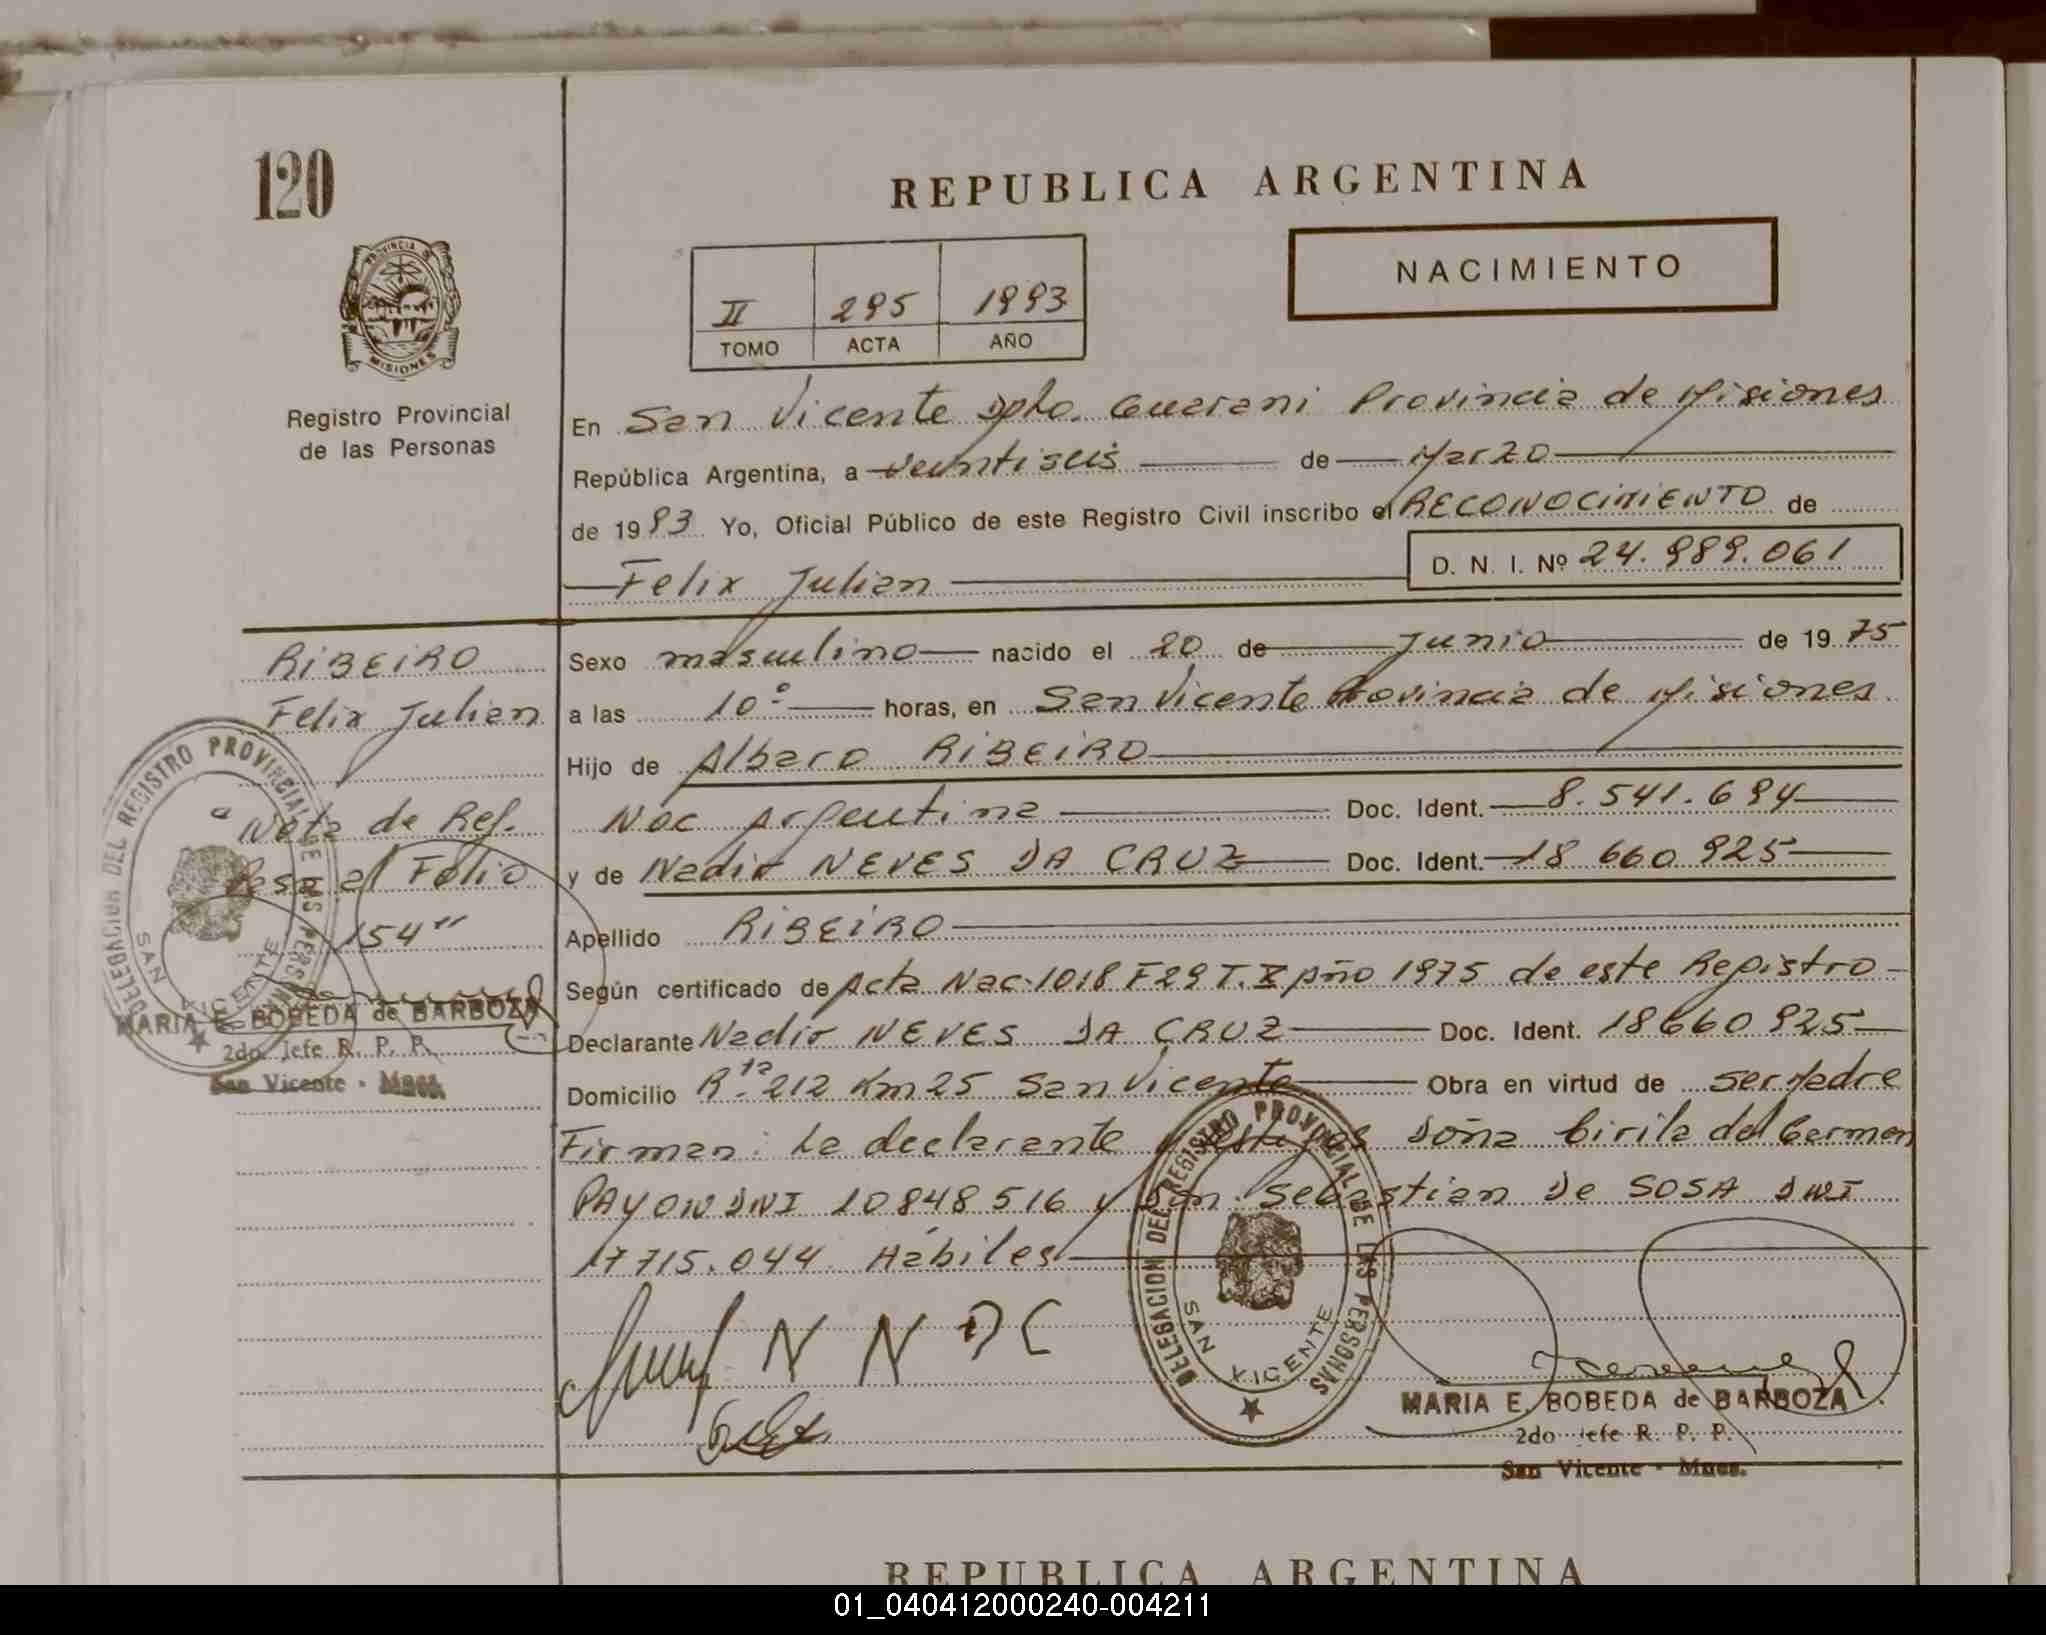 120
REPUBLICA ARGENTINA
NACIMIENTO
PROVINCIA DE
MISIONES
II 295 1993
TOMO ACTA AÑO
Registro Provincial
de las Personas
En San Vicente Dpto. Guarani Provincia de Misiones
República Argentina, a veintiseis de Marzo
de 1993 Yo, Oficial Público de este Registro Civil inscribo el RECONOCIMIENTO de
Felix Julian D. N. I. Nº 24.989.061
RIBEIRO
Felix Julian
Sexo masculino nacido el 20 de Junio de 1975
a las 10º horas, en San Vicente Provincia de Misiones
Hijo de Albaro RIBEIRO
Nac Argentina Doc. Ident. 8.541.694
y de Nadir NEVES DA CRUZ Doc. Ident. 18 660 925
Apellido RIBEIRO
Según certificado de Acta Nac. 1018 F 29 T. X Año 1975 de este Registro
Declarante Nadir NEVES DA CRUZ Doc. Ident. 18660925
Domicilio R.ta 212 Km 25 San Vicente Obra en virtud de ser Madre
Firman: La declarante y testigos Doña Cirila del Carmen
PAYON DNI 10848516 y Don Sebastian De SOSA DNI
17715.044 Habiles
"Nota de Ref.
Pasa al Folio
154"
MARIA E. BOBEDA de BARBOZA
2do. Jefe R. P. P.
San Vicente - Mnes.
DELEGACION DEL REGISTRO PROVINCIAL DE LAS PERSONAS
SAN VICENTE
N N DC
DELEGACION DEL REGISTRO PROVINCIAL DE LAS PERSONAS
SAN VICENTE
MARIA E. BOBEDA de BARBOZA
2do Jefe R. P. P.
San Vicente - Mnes.
REPUBLICA ARGENTINA
01_040412000240-004211